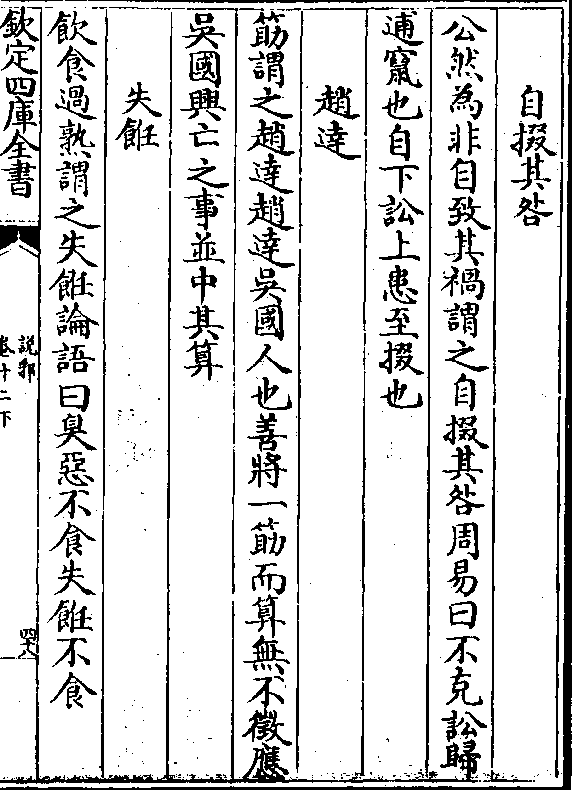 自掇其咎
公然為非自致其禍謂之自掇其咎周易曰不克訟歸
逋竄也自下訟上患至掇也
趙達
筯謂之趙達趙達吳國人也善將一筯而算無不徵應
吳國興亡之事並中其算
失飪
飲食過熟謂之失飪論語曰臭惡不食失飪不食
欽定四庫全書
說郛
卷十二下